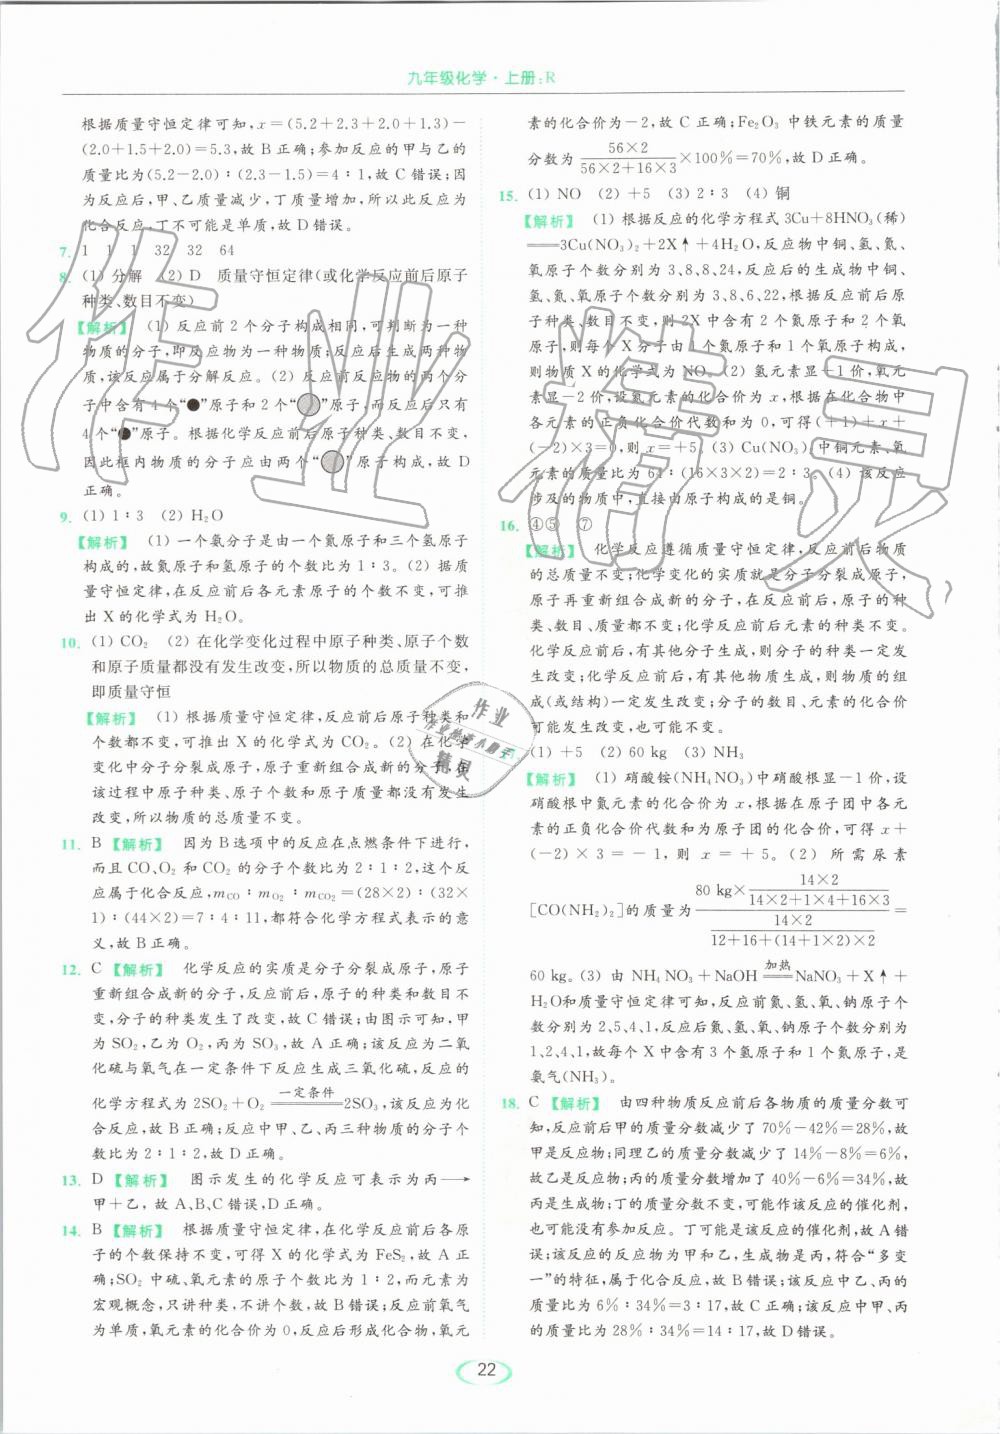 九年级化学·上册:R
根据质量守恒定律可知，x＝(5.2＋2.3＋2.0＋1.3)－
(2.0＋1.5＋2.0)＝5.3，故 B 正确；参加反应的甲与乙的
质量比为(5.2－2.0)∶(2.3－1.5)＝4∶1，故 C 错误；因
为反应后，甲、乙质量减少，丁质量增加，所以此反应为
化合反应，丁不可能是单质，故 D 错误。
7. 1 1 1 32 32 64
8. (1) 分解 (2) D 质量守恒定律(或化学反应前后原子
种类、数目不变)
【解析】 (1) 反应前 2 个分子构成相同，可判断为一种
物质的分子，即反应物为一种物质；反应后生成两种物
质，该反应属于分解反应。(2) 反应前反应物的两个分
子中含有 4 个“●”原子和 2 个“○”原子，而反应后只有
4 个“●”原子。根据化学反应前后原子种类、数目不变，
因此框内物质的分子应由两个“○”原子构成，故 D
正确。
9. (1) 1∶3 (2) H₂O
【解析】 (1) 一个氨分子是由一个氮原子和三个氢原子
构成的，故氮原子和氢原子的个数比为 1∶3。(2) 据质
量守恒定律，在反应前后各元素原子的个数不变，可推
出 X 的化学式为 H₂O。
10. (1) CO₂ (2) 在化学变化过程中原子种类、原子个数
和原子质量都没有发生改变，所以物质的总质量不变，
即质量守恒
【解析】 (1) 根据质量守恒定律，反应前后原子种类和
个数都不变，可推出 X 的化学式为 CO₂。(2) 在化学
变化中分子分裂成原子，原子重新组合成新的分子，在
该过程中原子种类、原子个数和原子质量都没有发生
改变，所以物质的总质量不变。
11. B【解析】 因为 B 选项中的反应在点燃条件下进行，
而且 CO、O₂ 和 CO₂ 的分子个数比为 2∶1∶2，这个反
应属于化合反应，m_CO∶m_O₂∶m_CO₂＝(28×2)∶(32×
1)∶(44×2)＝7∶4∶11，都符合化学方程式表示的意
义，故 B 正确。
12. C【解析】 化学反应的实质是分子分裂成原子，原子
重新组合成新的分子，反应前后，原子的种类和数目不
变，分子的种类发生了改变，故 C 错误；由图示可知，甲
为 SO₂，乙为 O₂，丙为 SO₃，故 A 正确；该反应为二氧
化硫与氧气在一定条件下反应生成三氧化硫，反应的
化学方程式为 2SO₂＋O₂ ══一定条件══ 2SO₃，该反应为化
合反应，故 B 正确；反应中甲、乙、丙三种物质的分子个
数比为 2∶1∶2，故 D 正确。
13. D【解析】 图示发生的化学反应可表示为丙→
甲＋乙，故 A、B、C 错误，D 正确。
14. B【解析】 根据质量守恒定律，在化学反应前后各原
子的个数保持不变，可得 X 的化学式为 FeS₂，故 A 正
确；SO₂ 中硫、氧元素的原子个数比为 1∶2，而元素为
宏观概念，只讲种类，不讲个数，故 B 错误；反应前氧气
为单质，氧元素的化合价为 0，反应后形成化合物，氧元
素的化合价为－2，故 C 正确；Fe₂O₃ 中铁元素的质量
分数为 (56×2)/(56×2＋16×3)×100％＝70％，故 D 正确。
15. (1) NO (2) ＋5 (3) 2∶3 (4) 铜
【解析】 (1) 根据反应的化学方程式 3Cu＋8HNO₃(稀)
══3Cu(NO₃)₂＋2X↑＋4H₂O，反应物中铜、氢、氮、
氧原子个数分别为 3、8、8、24，反应后的生成物中铜、
氢、氮、氧原子个数分别为 3、8、6、22，根据反应前后原
子种类、数目不变，则 2X 中含有 2 个氮原子和 2 个氧
原子，则每个 X 分子由 1 个氮原子和 1 个氧原子构成，
则物质 X 的化学式为 NO。(2) 氢元素显＋1 价，氧元
素显－2 价，设氮元素的化合价为 x，根据在化合物中
各元素的正负化合价代数和为 0，可得(＋1)＋x＋
(－2)×3＝0，则 x＝＋5。(3) Cu(NO₃)₂ 中铜元素、氧
元素的质量比为 64∶(16×3×2)＝2∶3。(4) 该反应
涉及的物质中，直接由原子构成的是铜。
16. ④⑤ ⑦
【解析】 化学反应遵循质量守恒定律，反应前后物质
的总质量不变；化学变化的实质就是分子分裂成原子，
原子再重新组合成新的分子，在反应前后，原子的种
类、数目、质量不变；化学反应前后元素的种类不变。
化学反应后，有其他分子生成，则分子的种类一定发
生改变；化学反应后，有其他物质生成，则物质的组
成(或结构)一定发生改变；分子的数目、元素的化合价
可能发生改变，也可能不变。
(1) ＋5 (2) 60 kg (3) NH₃
【解析】 (1) 硝酸铵(NH₄NO₃)中硝酸根显－1 价，设
硝酸根中氮元素的化合价为 x，根据在原子团中各元
素的正负化合价代数和为原子团的化合价，可得 x＋
(－2)×3＝－1，则 x＝＋5。(2) 所需尿素
[CO(NH₂)₂]的质量为 (80 kg×(14×2)/(14×2＋1×4＋16×3))/((14×2)/(12＋16＋(14＋1×2)×2))＝
60 kg。(3) 由 NH₄NO₃＋NaOH ══加热══ NaNO₃＋X↑＋
H₂O和质量守恒定律可知，反应前氮、氢、氧、钠原子个
数分别为 2、5、4、1，反应后氮、氢、氧、钠原子个数分别为
1、2、4、1，故每个 X 中含有 3 个氢原子和 1 个氮原子，是
氨气(NH₃)。
18. C【解析】 由四种物质反应前后各物质的质量分数可
知，反应前后甲的质量分数减少了 70％－42％＝28％，
故甲是反应物；同理乙的质量分数减少了 14％－8％＝6％，
故乙是反应物；丙的质量分数增加了 40％－6％＝34％，故
丙是生成物；丁的质量分数不变，可能作该反应的催化剂，
也可能没有参加反应。丁可能是该反应的催化剂，故 A 错
误；该反应的反应物为甲和乙，生成物是丙，符合“多变
一”的特征，属于化合反应，故 B 错误；该反应中乙、丙的
质量比为 6％∶34％＝3∶17，故 C 正确；该反应中甲、丙
的质量比为 28％∶34％＝14∶17，故 D 错误。
22
作业精灵
作业
作业检查小助手
精灵